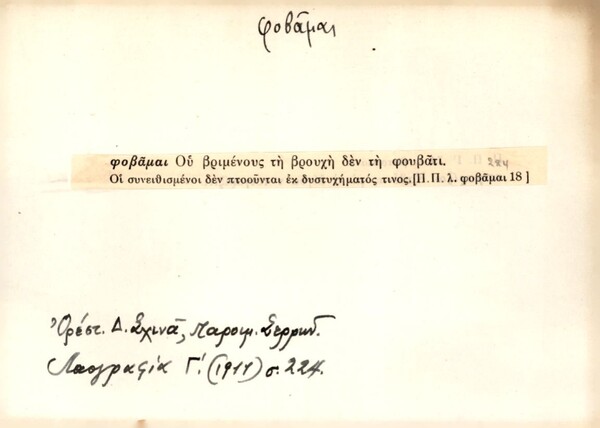 φοβᾶμαι
φοβᾶμαι Οὑ βριμένους τὴ βρουχὴ δὲν τὴ φουβᾶτι. 224
Οἱ συνειθισμένοι δὲν πτοοῦνται ἐκ δυστυχήματός τινος.[Π.Π. λ. φοβᾶμαι 18 ]
Ὀρέστ. Δ. Σχινᾶ, Παροιμ. Σερρῶν.
Λαογραφία Γ΄. (1911) σ. 224.